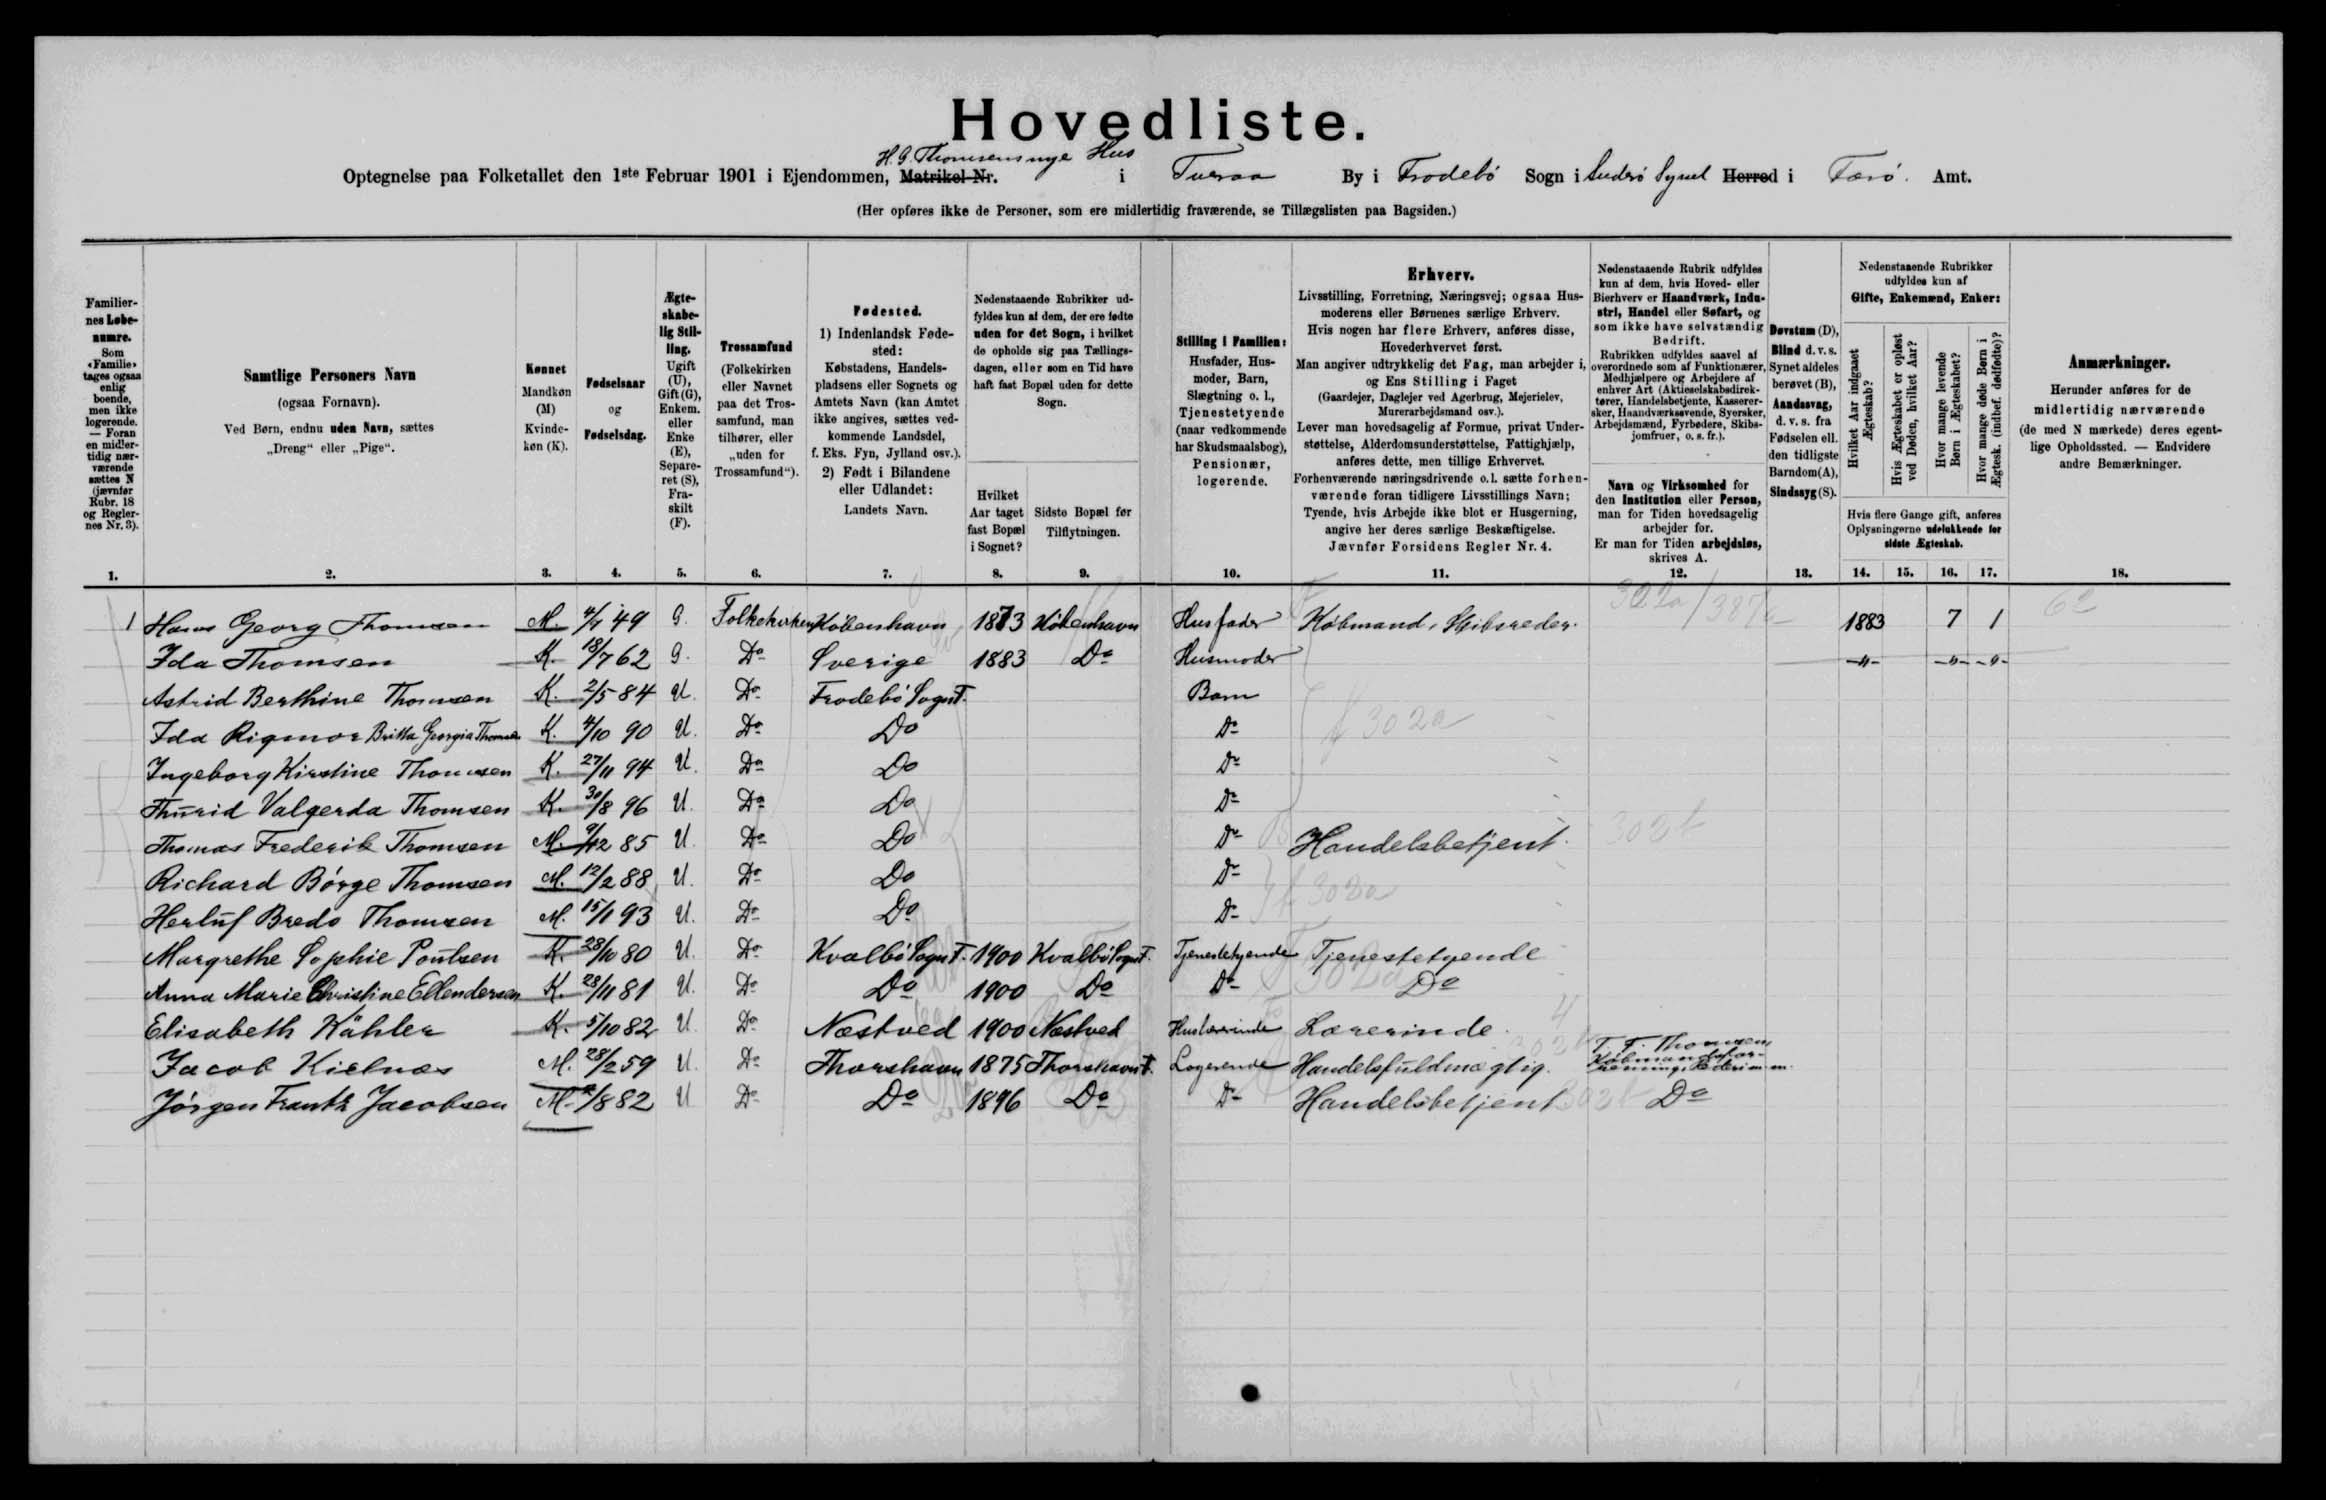 Hovedliste.
H. G. Thomsens nye Hus
Optegnelse paa Folketallet den 1ste Februar 1901 i Ejendommen, Matrikel-Nr. i Tveraa By i Frodebö Sogn i Suderö Syssel Herred i Færö. Amt.
(Her opføres ikke de Personer, som ere midlertidig fraværende, se Tillægslisten paa Bagsiden.)
Familiernes Løbenumre. Som «Familie» tages ogsaa enlig boende, men ikke logerende. — Foran en midlertidig nærværende sættes N (jævnfør Rubr. 18 og Reglernes Nr. 3).
Samtlige Personers Navn
(ogsaa Fornavn).
Ved Børn, endnu uden Navn, sættes
„Dreng“ eller „Pige“.
Kønnet
Mandkøn (M) Kvindekøn (K).
Fødselsaar
og
Fødselsdag.
Ægteskabelig Stilling. Ugift (U), Gift (G), Enkem. eller Enke (E), Separeret (S), Fraskilt (F).
Trossamfund
(Folkekirken eller Navnet paa det Trossamfund, man tilhører, eller „uden for Trossamfund“).
Fødested.
1) Indenlandsk Fødested: Købstadens, Handelspladsens eller Sognets og Amtets Navn (kan Amtet ikke angives, sættes vedkommende Landsdel, f. Eks. Fyn, Jylland osv.).
2) Født i Bilandene eller Udlandet: Landets Navn.
Nedenstaaende Rubrikker udfyldes kun af dem, der ere fødte uden for det Sogn, i hvilket de opholde sig paa Tællingsdagen, eller som en Tid have haft fast Bopæl uden for dette Sogn.
Hvilket Aar taget fast Bopæl i Sognet?
Sidste Bopæl før Tilflytningen.
Stilling i Familien:
Husfader, Husmoder, Barn, Slægtning o. l., Tjenestetyende (naar vedkommende har Skudsmaalsbog), Pensionær, logerende.
Erhverv.
Livsstilling, Forretning, Næringsvej; ogsaa Husmoderens eller Børnenes særlige Erhverv.
Hvis nogen har flere Erhverv, anføres disse, Hovederhvervet først.
Man angiver udtrykkelig det Fag, man arbejder i, og Ens Stilling i Faget
(Gaardejer, Daglejer ved Agerbrug, Mejerielev, Murerarbejdsmand osv.).
Lever man hovedsagelig af Formue, privat Understøttelse, Alderdomsunderstøttelse, Fattighjælp, anføres dette, men tillige Erhvervet.
Forhenværende næringsdrivende o. l. sætte forhenværende foran tidligere Livsstillings Navn;
Tyende, hvis Arbejde ikke blot er Husgerning, angive her deres særlige Beskæftigelse.
Jævnfør Forsidens Regler Nr. 4.
Nedenstaaende Rubrik udfyldes kun af dem, hvis Hoved- eller Bierhverv er Haandværk, Industri, Handel eller Søfart, og som ikke have selvstændig Bedrift.
Rubrikken udfyldes saavel af overordnede som af Funktionærer, Medhjælpere og Arbejdere af enhver Art (Aktieselskabsdirektører, Handelsbetjente, Kasserersker, Haandværkssvende, Syersker, Arbejdsmænd, Fyrbødere, Skibsjomfruer, o. s. fr.).
Navn og Virksomhed for den Institution eller Person, man for Tiden hovedsagelig arbejder for.
Er man for Tiden arbejdsløs, skrives A.
Døvstum (D), Blind d. v. s. Synet aldeles berøvet (B), Aandssvag, d. v. s. fra Fødselen ell. den tidligste Barndom (A), Sindssyg (S).
Nedenstaaende Rubrikker udfyldes kun af
Gifte, Enkemænd, Enker:
Hvilket Aar indgaaet Ægteskab?
Hvis Ægteskabet er opløst ved Døden, hvilket Aar?
Hvor mange levende Børn i Ægteskabet?
Hvor mange døde Børn i Ægtesk. (indbef. dødfødte)?
Hvis flere Gange gift, anføres Oplysningerne udelukkende for sidste Ægteskab.
Anmærkninger.
Herunder anføres for de midlertidig nærværende (de med N mærkede) deres egentlige Opholdssted. — Endvidere andre Bemærkninger.
1. 2. 3. 4. 5. 6. 7. 8. 9. 10. 11. 12. 13. 14. 15. 16. 17. 18.
1 Hans Georg Thomsen M. 4/7 49 G. Folkekirken København 1873 København Husfader Købmand, Skibsreder. 302a/387 1883 7 1 62
Ida Thomsen K. 18/7 62 G. Do Sverige 1883 Do Husmoder -"- -"- -"-
Astrid Berthine Thomsen K. 2/5 84 U. Do Frodebö Sogn F. Barn
Ida Rigmor Britta Georgia Thomsen K. 4/10 90 U. Do Do Do f 302a
Ingeborg Kirstine Thomsen K. 27/11 94 U. Do Do Do
Thurid Valgerda Thomsen K. 30/8 96 U. Do Do Do
Thomas Frederik Thomsen M. 9/12 85 U. Do Do Do Handelsbetjent. 302b
Richard Börge Thomsen M. 12/2 88 U. Do Do Do f 302a
Herluf Bredo Thomsen M. 15/1 93 U. Do Do Do
Margrethe Sophie Poulsen K. 28/10 80 U. Do Kvalbö Sogn F. 1900 Kvalbö Sogn F. Tjenestetyende Tjenestetyende
Anna Marie Christine Ellendersen K. 28/11 81 U. Do Do 1900 Do Do Do 302a
Elisabeth Kähler K. 5/10 82 U. Do Næstved 1900 Næstved Huslærerinde Lærerinde. 4
Jacob Kielnæs M. 28/2 59 U. Do Thorshavn 1875 Thorshavn F. Logerende Handelsfuldmægtig. T. F. Thomsen Købmandsforretning, Rederi m. m.
Jörgen Frantz Jacobsen M. /8 82 U Do Do 1896 Do Do Handelsbetjent 302b Do